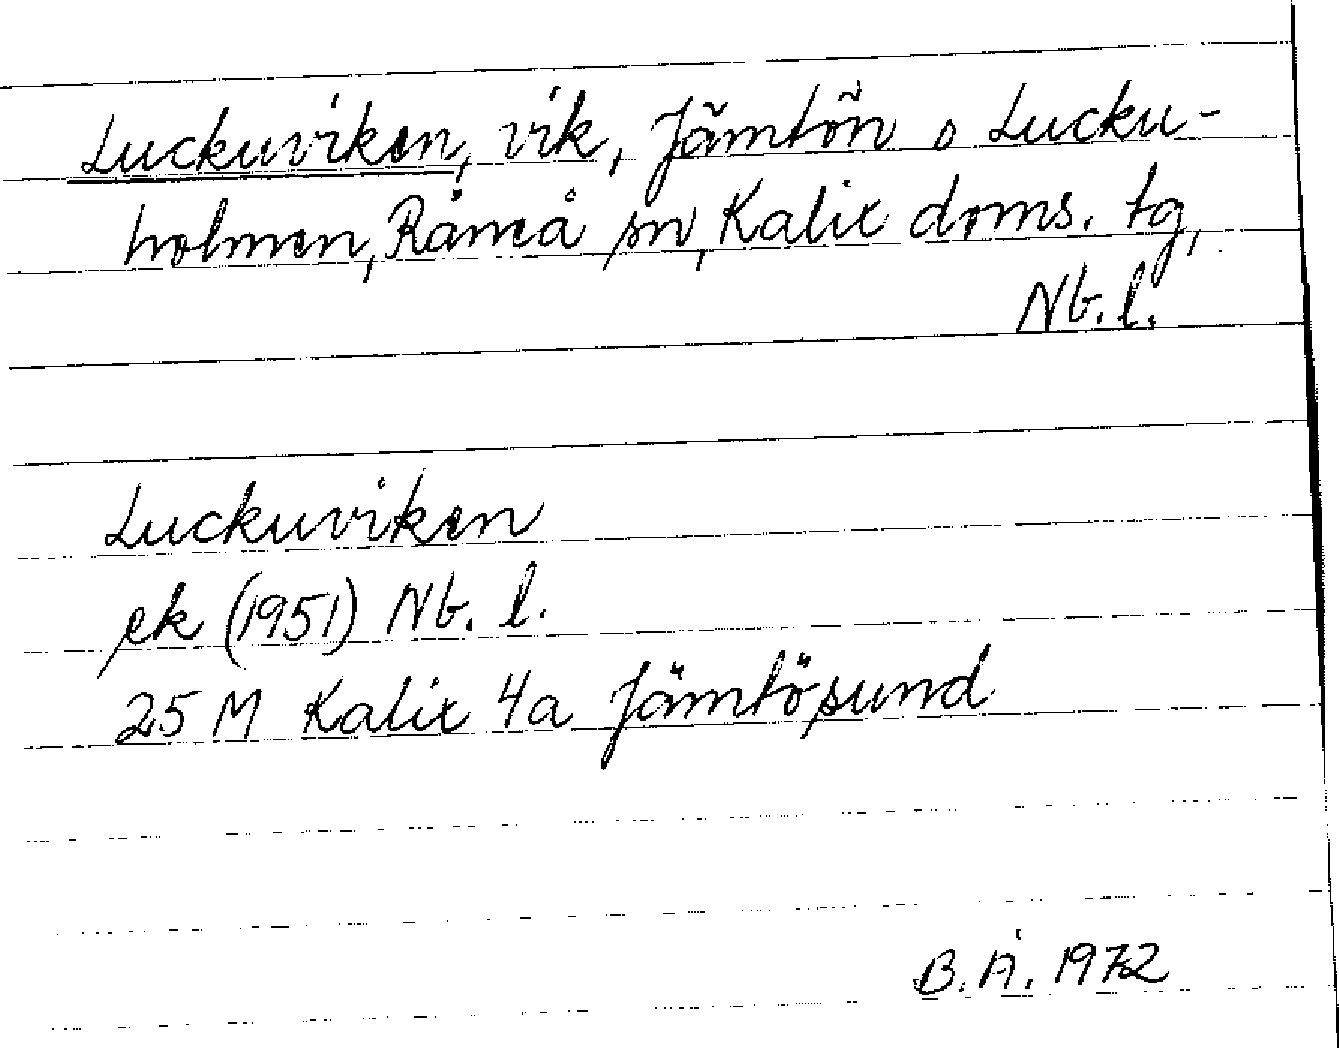 Luckuviken, vik, Jämtön o Lucku-
holmen, Råneå sn, Kalix doms. tg,
Nb. l.
Luckuviken
ek (1951) Nb. l.
25 M Kalix 4a Jämtösund
B. Å. 1972